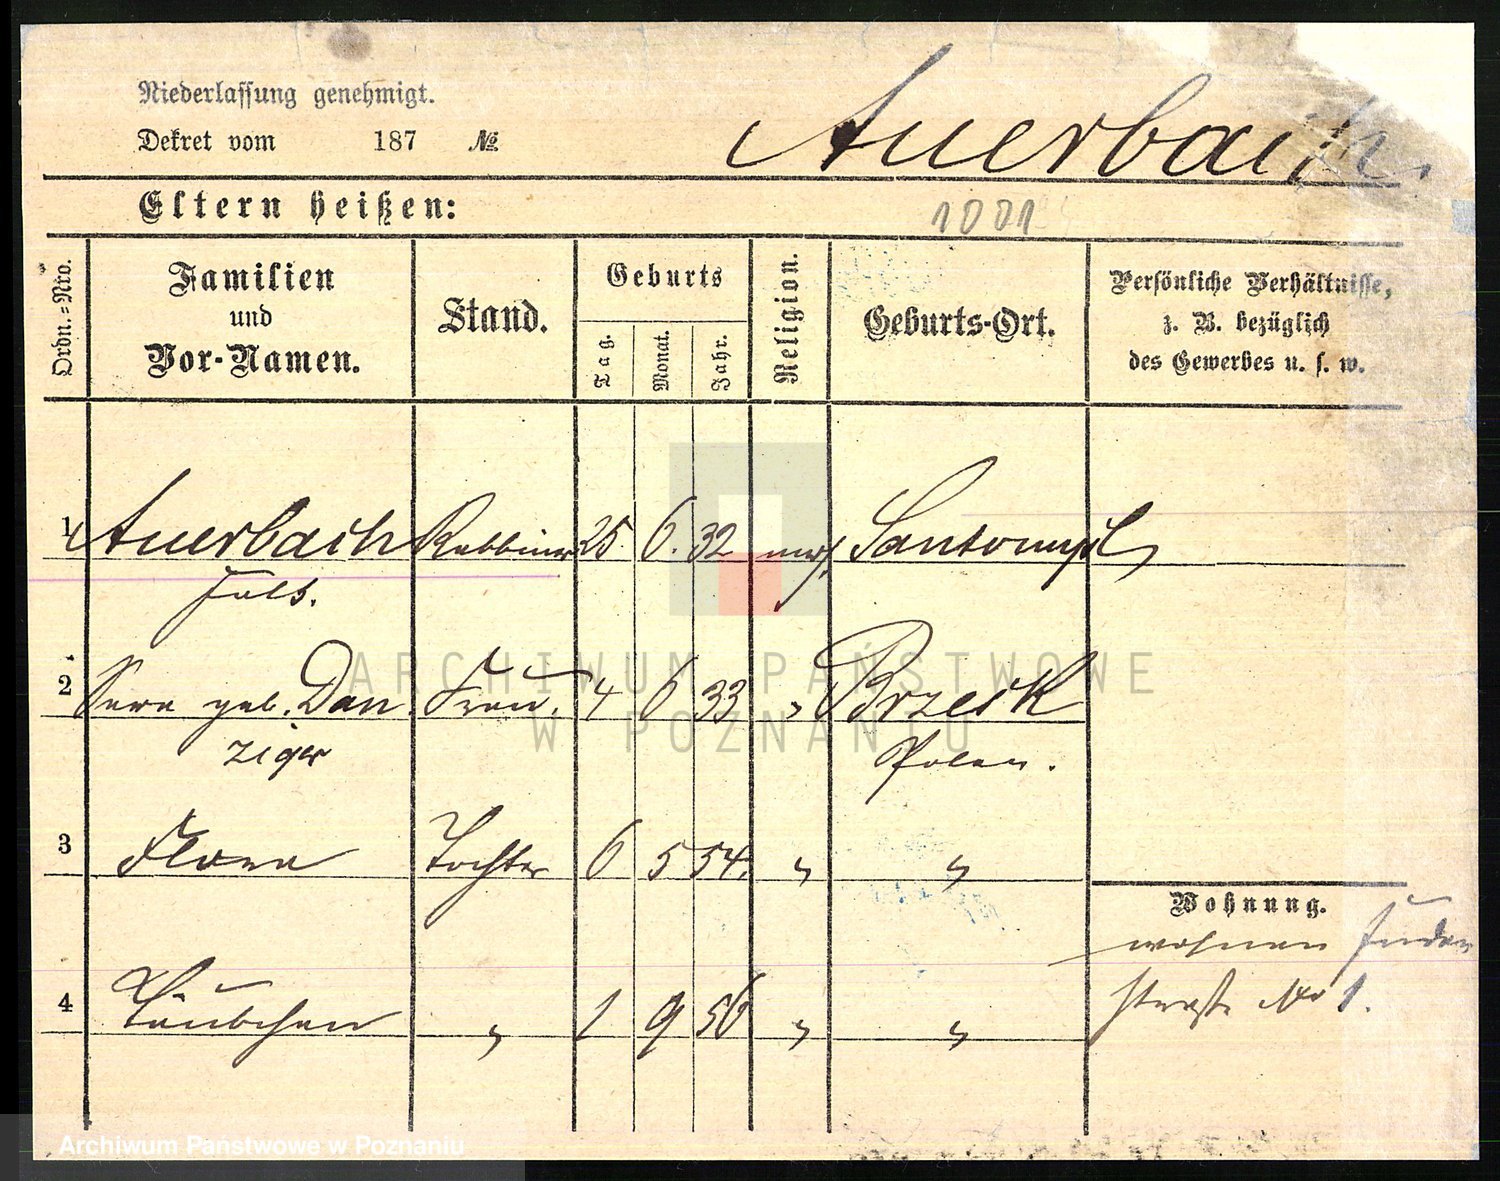 Niederlassung genehmigt.
Auerbach
Dekret vom 187 №
Eltern heißen:
1001
Ordn.=Nro.
Familien und Vor-Namen.
Stand.
Geburts
Tag. Monat. Jahr.
Religion.
Geburts-Ort.
Persönliche Verhältnisse,
z. B. bezüglich
des Gewerbes u. s. w.
1 Auerbach Rabbiner 25. 6. 32 Santomysl
2 Sara geb. Dan Frau. 4 6 33 " Brzesk
ziger Polen.
3 Flora Tochter 6 5 54. " "
Wohnung.
wohnen Juden
straße No 1.
4 Täubchen " 1 9 56 " "
ARCHIWUM PAŃSTWOWE
W POZNANIU
Archiwum Państwowe w Poznaniu